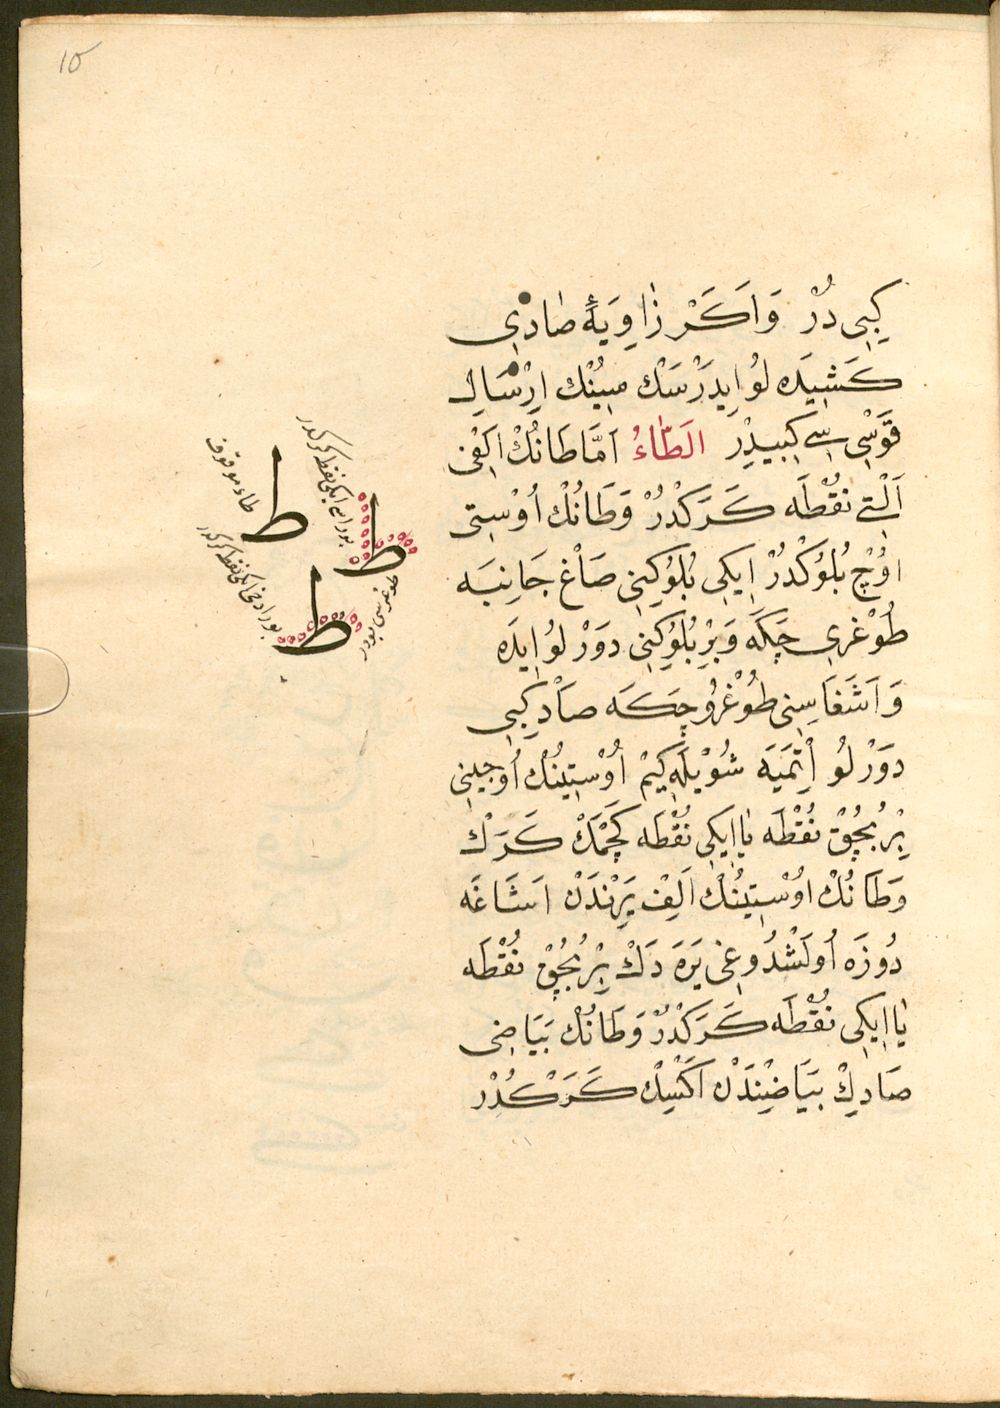 كِبِى دُرْ وَاَكَرْ زَاوِيَهٔ صَادِى
كَشِيدَه لُو اِيدَرْسَكْ سِينُكْ اِرْسَالِ
قَوْسِى سِى كِبِيدِرْ الَطَّاءُ اَمَّا طَانُكْ اَلِفِى
اَلْتِى نُقْطَه كَرَكْدُرْ وَطَانُكْ اُوْسِتِى
اوُچْ بُلُوكْدُرْ اِيكِى بُلُوكِنِى صَاغْ جَانِبَه
طُوْغرِى چَكَه وَبِرْ بُلُوكِنِى دَوْرلُو اِيدَه
وَاَشَغَاسِنِى طُوْغرُو چَكَه صَادْ كِبِى
دَوْرلُو اِتْمَيَه شُوْيلَه كِيمْ اُوْسْتِينُكْ اُوجِينِى
بِرْ بُچُقْ نُقْطَه يَا اِيكِى نُقْطَه كَچْمَكْ كَرَكْ
وَطَانُكْ اوُسْتِينُكْ اَلِفْ يَرِنْدَنْ اَشَاغَه
دُوزَه اُولَشْدُوغِى يَرَه دَكْ بِرْ بُچُقْ نُقْطَه
يَا اِيكِى نُقْطَه كَرَكْدُرْ وَطَانُكْ بَيَاضِى
صَادِكْ بَيَاضِينْدَنْ اَكْسِكْ كَرَكْدُرْ
طاء موقوف
بوراسى ايكى نقطه كركدر
طوغريسى بودر
بوراده‌ى ايكى نقطه كركدر
ط
ط
ط
15